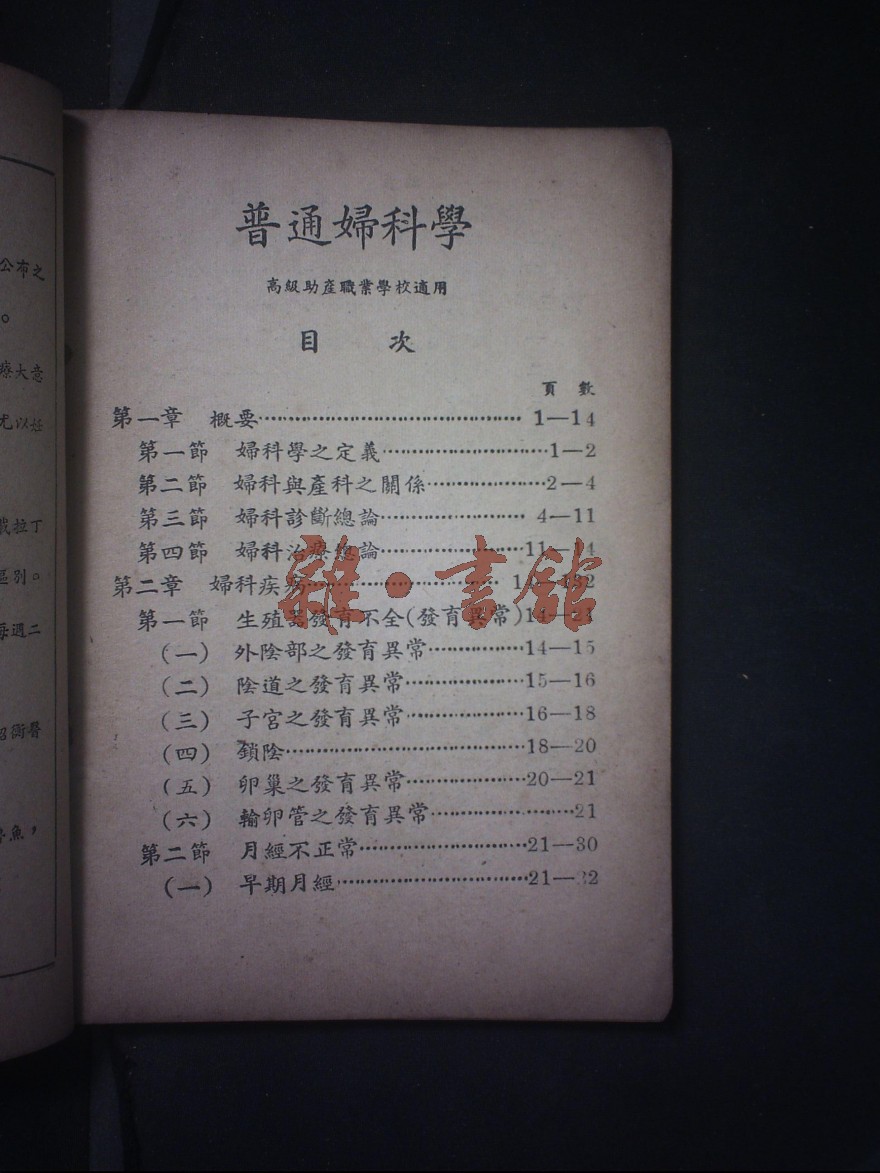 公布之
。
療大意
尤以妊
拉丁
區別。
每週二
醫
魚，
普通婦科學
高級助產職業學校適用
目 次
頁 數
第一章 概要 1—14
第一節 婦科學之定義 1—2
第二節 婦科與產科之關係 2—4
第三節 婦科診斷總論 4—11
第四節 婦科治療總論 11—14
第二章 婦科疾病 14—132
第一節 生殖器發育不全(發育異常) 14—21
(一) 外陰部之發育異常 14—15
(二) 陰道之發育異常 15—16
(三) 子宮之發育異常 16—18
(四) 鎖陰 18—20
(五) 卵巢之發育異常 20—21
(六) 輸卵管之發育異常 21
第二節 月經不正常 21—30
(一) 早期月經 21—22
雜·書館